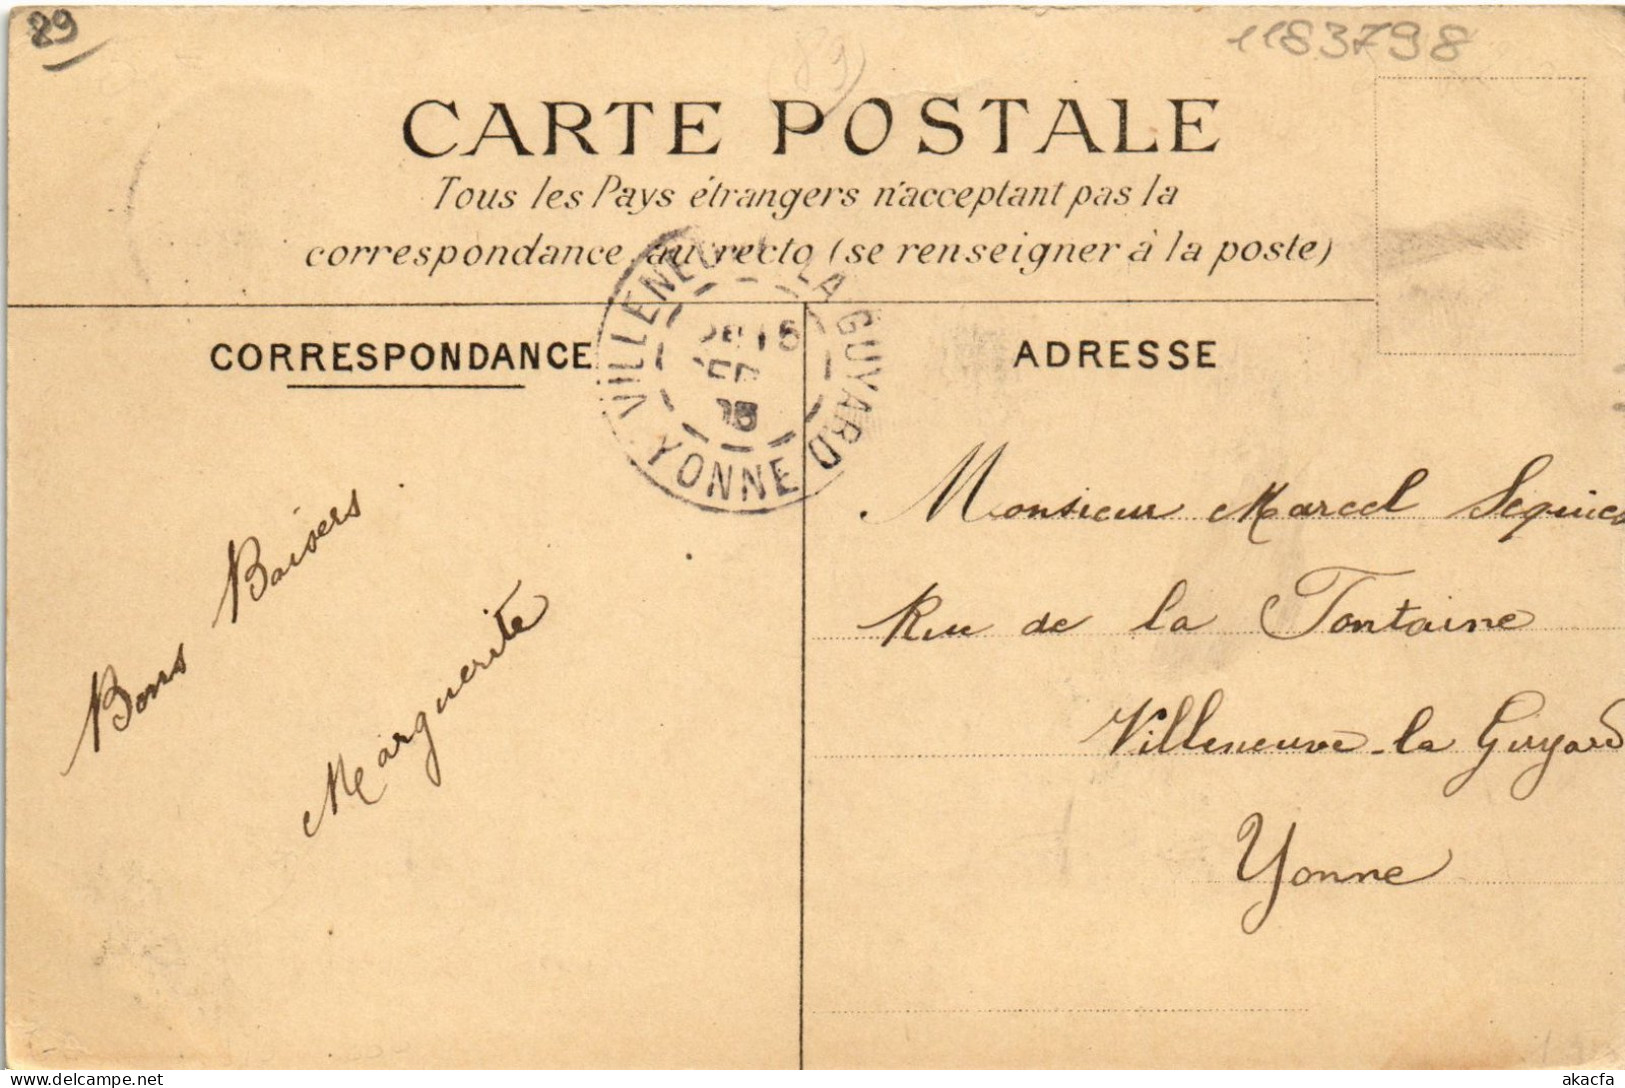 89
89
1183798
CARTE POSTALE
Tous les Pays étrangers n'acceptant pas la
correspondance au recto (se renseigner à la poste)
CORRESPONDANCE
VILLENEUVE LA GUYARD
YONNE
ADRESSE
Bons Baisers
Marguerite
Monsieur Marcel
Rue de la Fontaine
Villeneuve-la Guyard
Yonne
akacfa